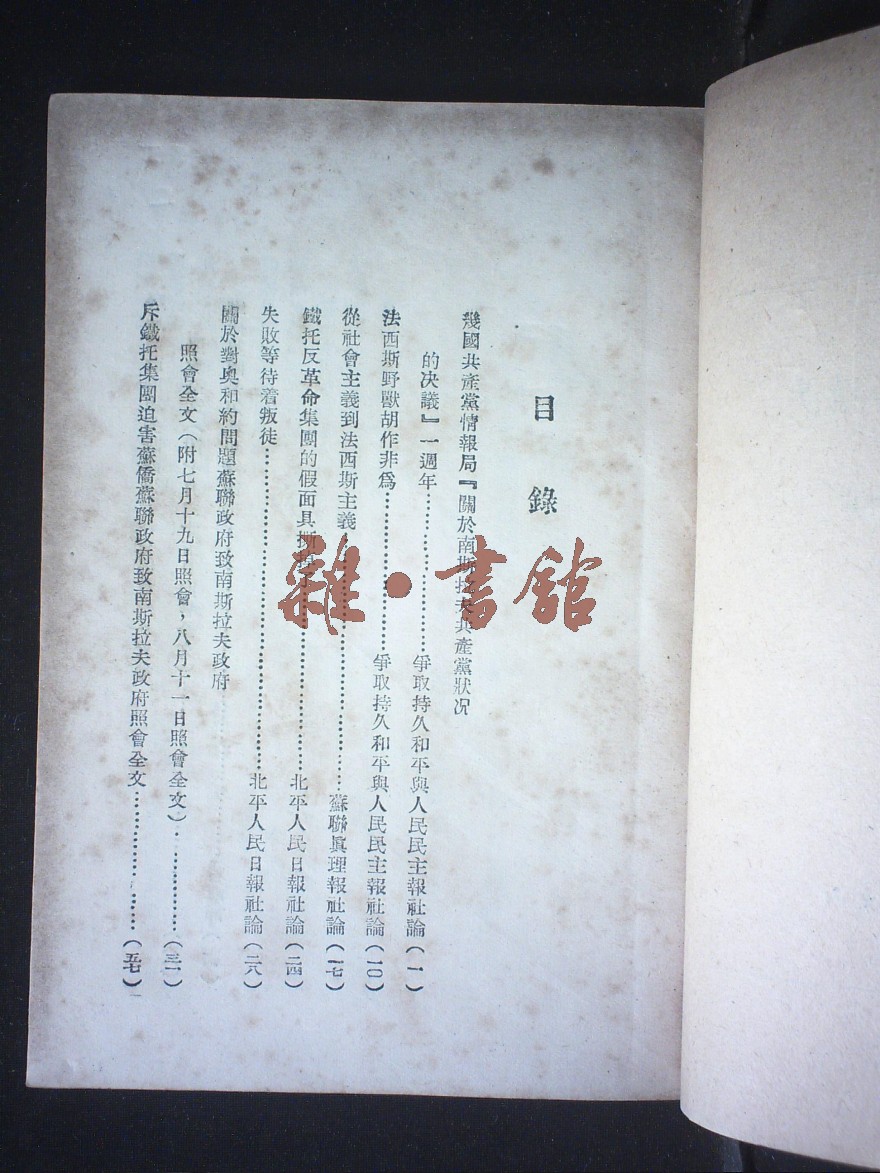 目錄
幾國共產黨情報局『關於南斯拉夫共產黨狀况
的决議』一週年……爭取持久和平與人民民主報社論(一)
法西斯野獸胡作非爲……爭取持久和平與人民民主報社論(一〇)
從社會主義到法西斯主義……蘇聯眞理報社論(一七)
鐵托反革命集團的假面具……北平人民日報社論(二四)
失敗等待着叛徒……北平人民日報社論(二八)
關於對奥和約問題蘇聯政府致南斯拉夫政府
照會全文(附七月十九日照會，八月十一日照會全文)……(三一)
斥鐵托集團迫害蘇僑蘇聯政府致南斯拉夫政府照會全文……(五七)
雜·書館